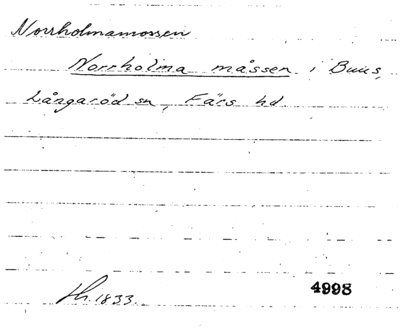 Norrholmamossen
Norrholma måssen i Buus,
Långaröd sn, Färs hd
Hr. 1833.
4998